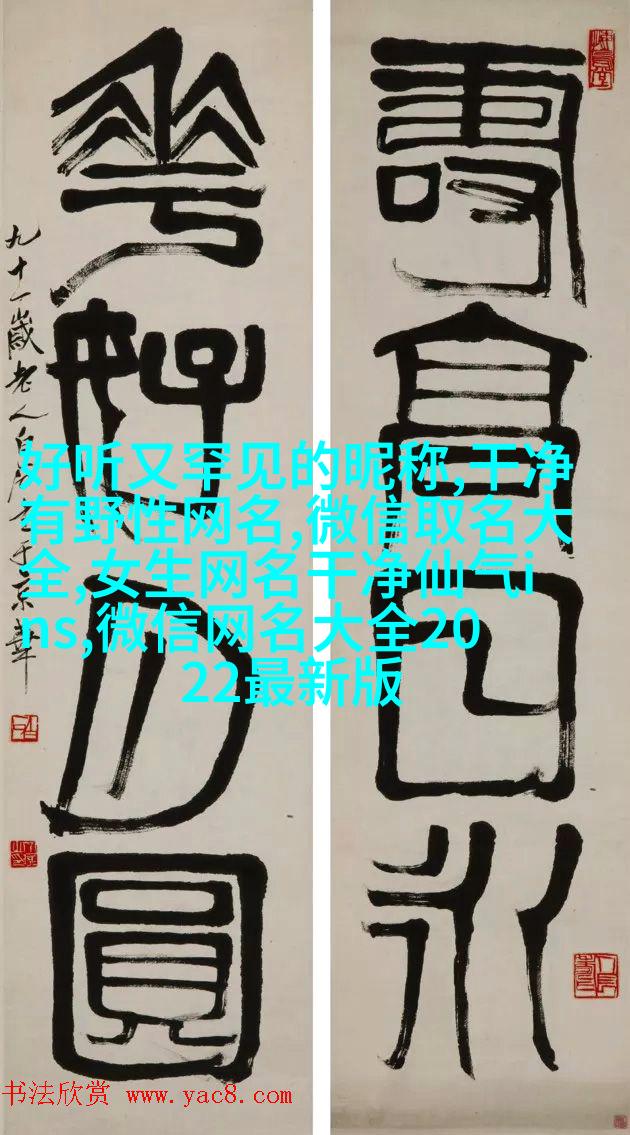 壽高日永
華好月圓
九十一歲老人白石于京華
好听又罕见的昵称,干净
有野性网名,微信取名大
全,女生网名干净仙气i
ns,微信网名大全20
22最新版
书法欣赏 www.yac8.com